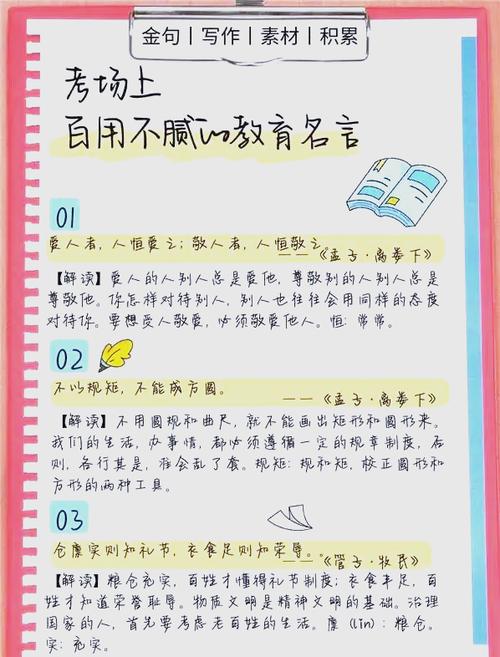 金句丨写作丨素材丨积累
考场上
百用不腻的教育名言
01
爱人者，人恒爱之；敬人者，人恒敬之
——《孟子·离娄下》
【解读】爱人的人别人总是爱他，尊敬别的人别人总是
尊敬他。你怎样对待别人，别人也往往会用同样的态度
对待你。要想受人敬爱，必须敬爱他人。恒：常常。
02
不以规矩，不能成方圆。
——《孟子·离娄下》
【解读】不用圆规和曲尺，就不能画出矩形和圆形来。
我们的生活，办事情，都必须遵循一定的规章制度，否
则，各行其是，准会乱了套。规矩：规和矩，校正圆形和
方形的两种工具。
03
仓廪实则知礼节，衣食足则知荣辱。。
——《管子·牧民》
【解读】粮仓充实，百姓才懂得礼节制度；衣食丰足，百
姓才知道荣誉耻辱。物质文明是精神文明的基础。治理
国家的人，首先要考虑老百姓的生活。廪（lǐn）：粮仓。
实：充实。